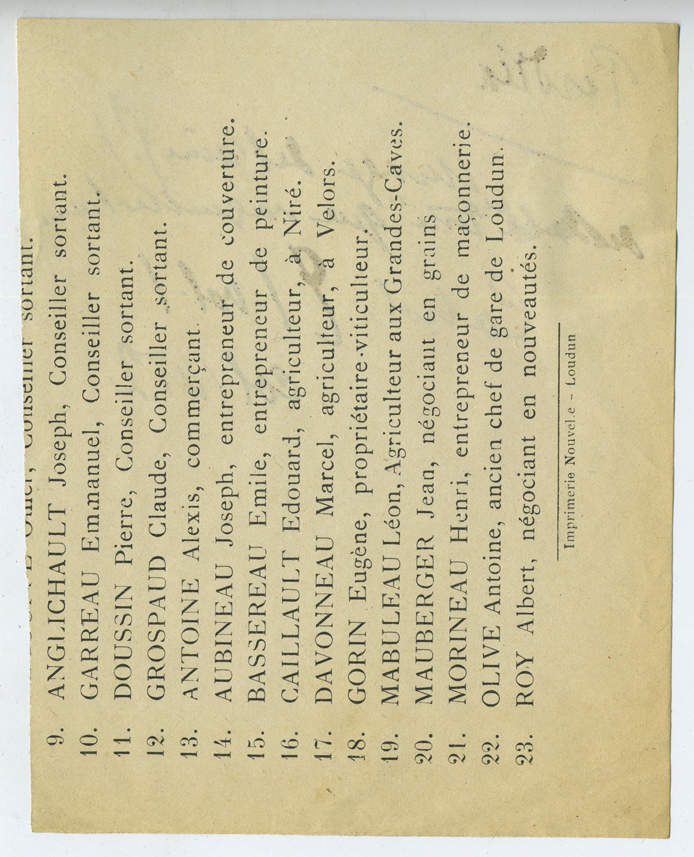 Conseiller sortant.
9. ANGLICHAULT Joseph, Conseiller sortant.
10. GARREAU Emmanuel, Conseiller sortant.
11. DOUSSIN Pierre, Conseiller sortant.
12. GROSPAUD Claude, Conseiller sortant.
13. ANTOINE Alexis, commerçant.
14. AUBINEAU Joseph, entrepreneur de couverture.
15. BASSEREAU Emile, entrepreneur de peinture.
16. CAILLAULT Edouard, agriculteur, à Niré.
17. DAVONNEAU Marcel, agriculteur, à Velors.
18. GORIN Eugène, propriétaire-viticulteur.
19. MABULEAU Léon, Agriculteur aux Grandes-Caves.
20. MAUBERGER Jean, négociant en grains
21. MORINEAU Henri, entrepreneur de maçonnerie.
22. OLIVE Antoine, ancien chef de gare de Loudun.
23. ROY Albert, négociant en nouveautés.
Imprimerie Nouvelle – Loudun